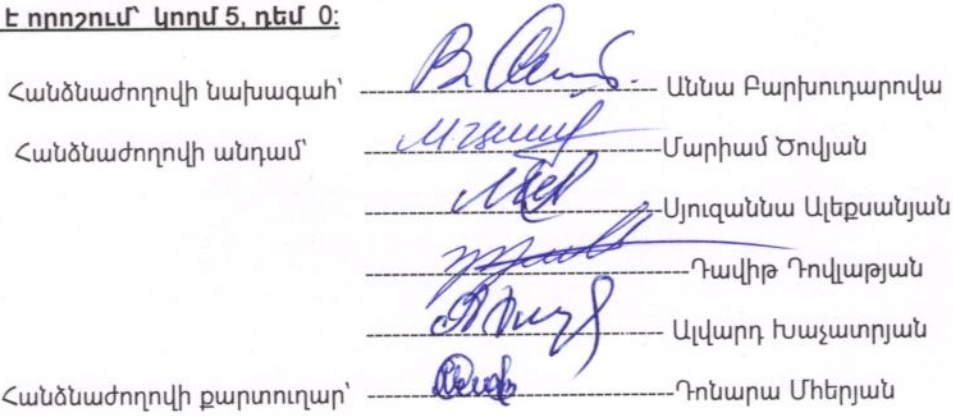 է որոշում՝ կողմ 5, դեմ 0:
Հանձնաժողովի նախագահ՝ Աննա Բարխուդարովա
Հանձնաժողովի անդամ՝ Մարիամ Ծովյան
Սյուզաննա Ալեքսանյան
Դավիթ Դովլաթյան
Ալվարդ Խաչատրյան
Հանձնաժողովի քարտուղար՝ Դոնարա Մհերյան